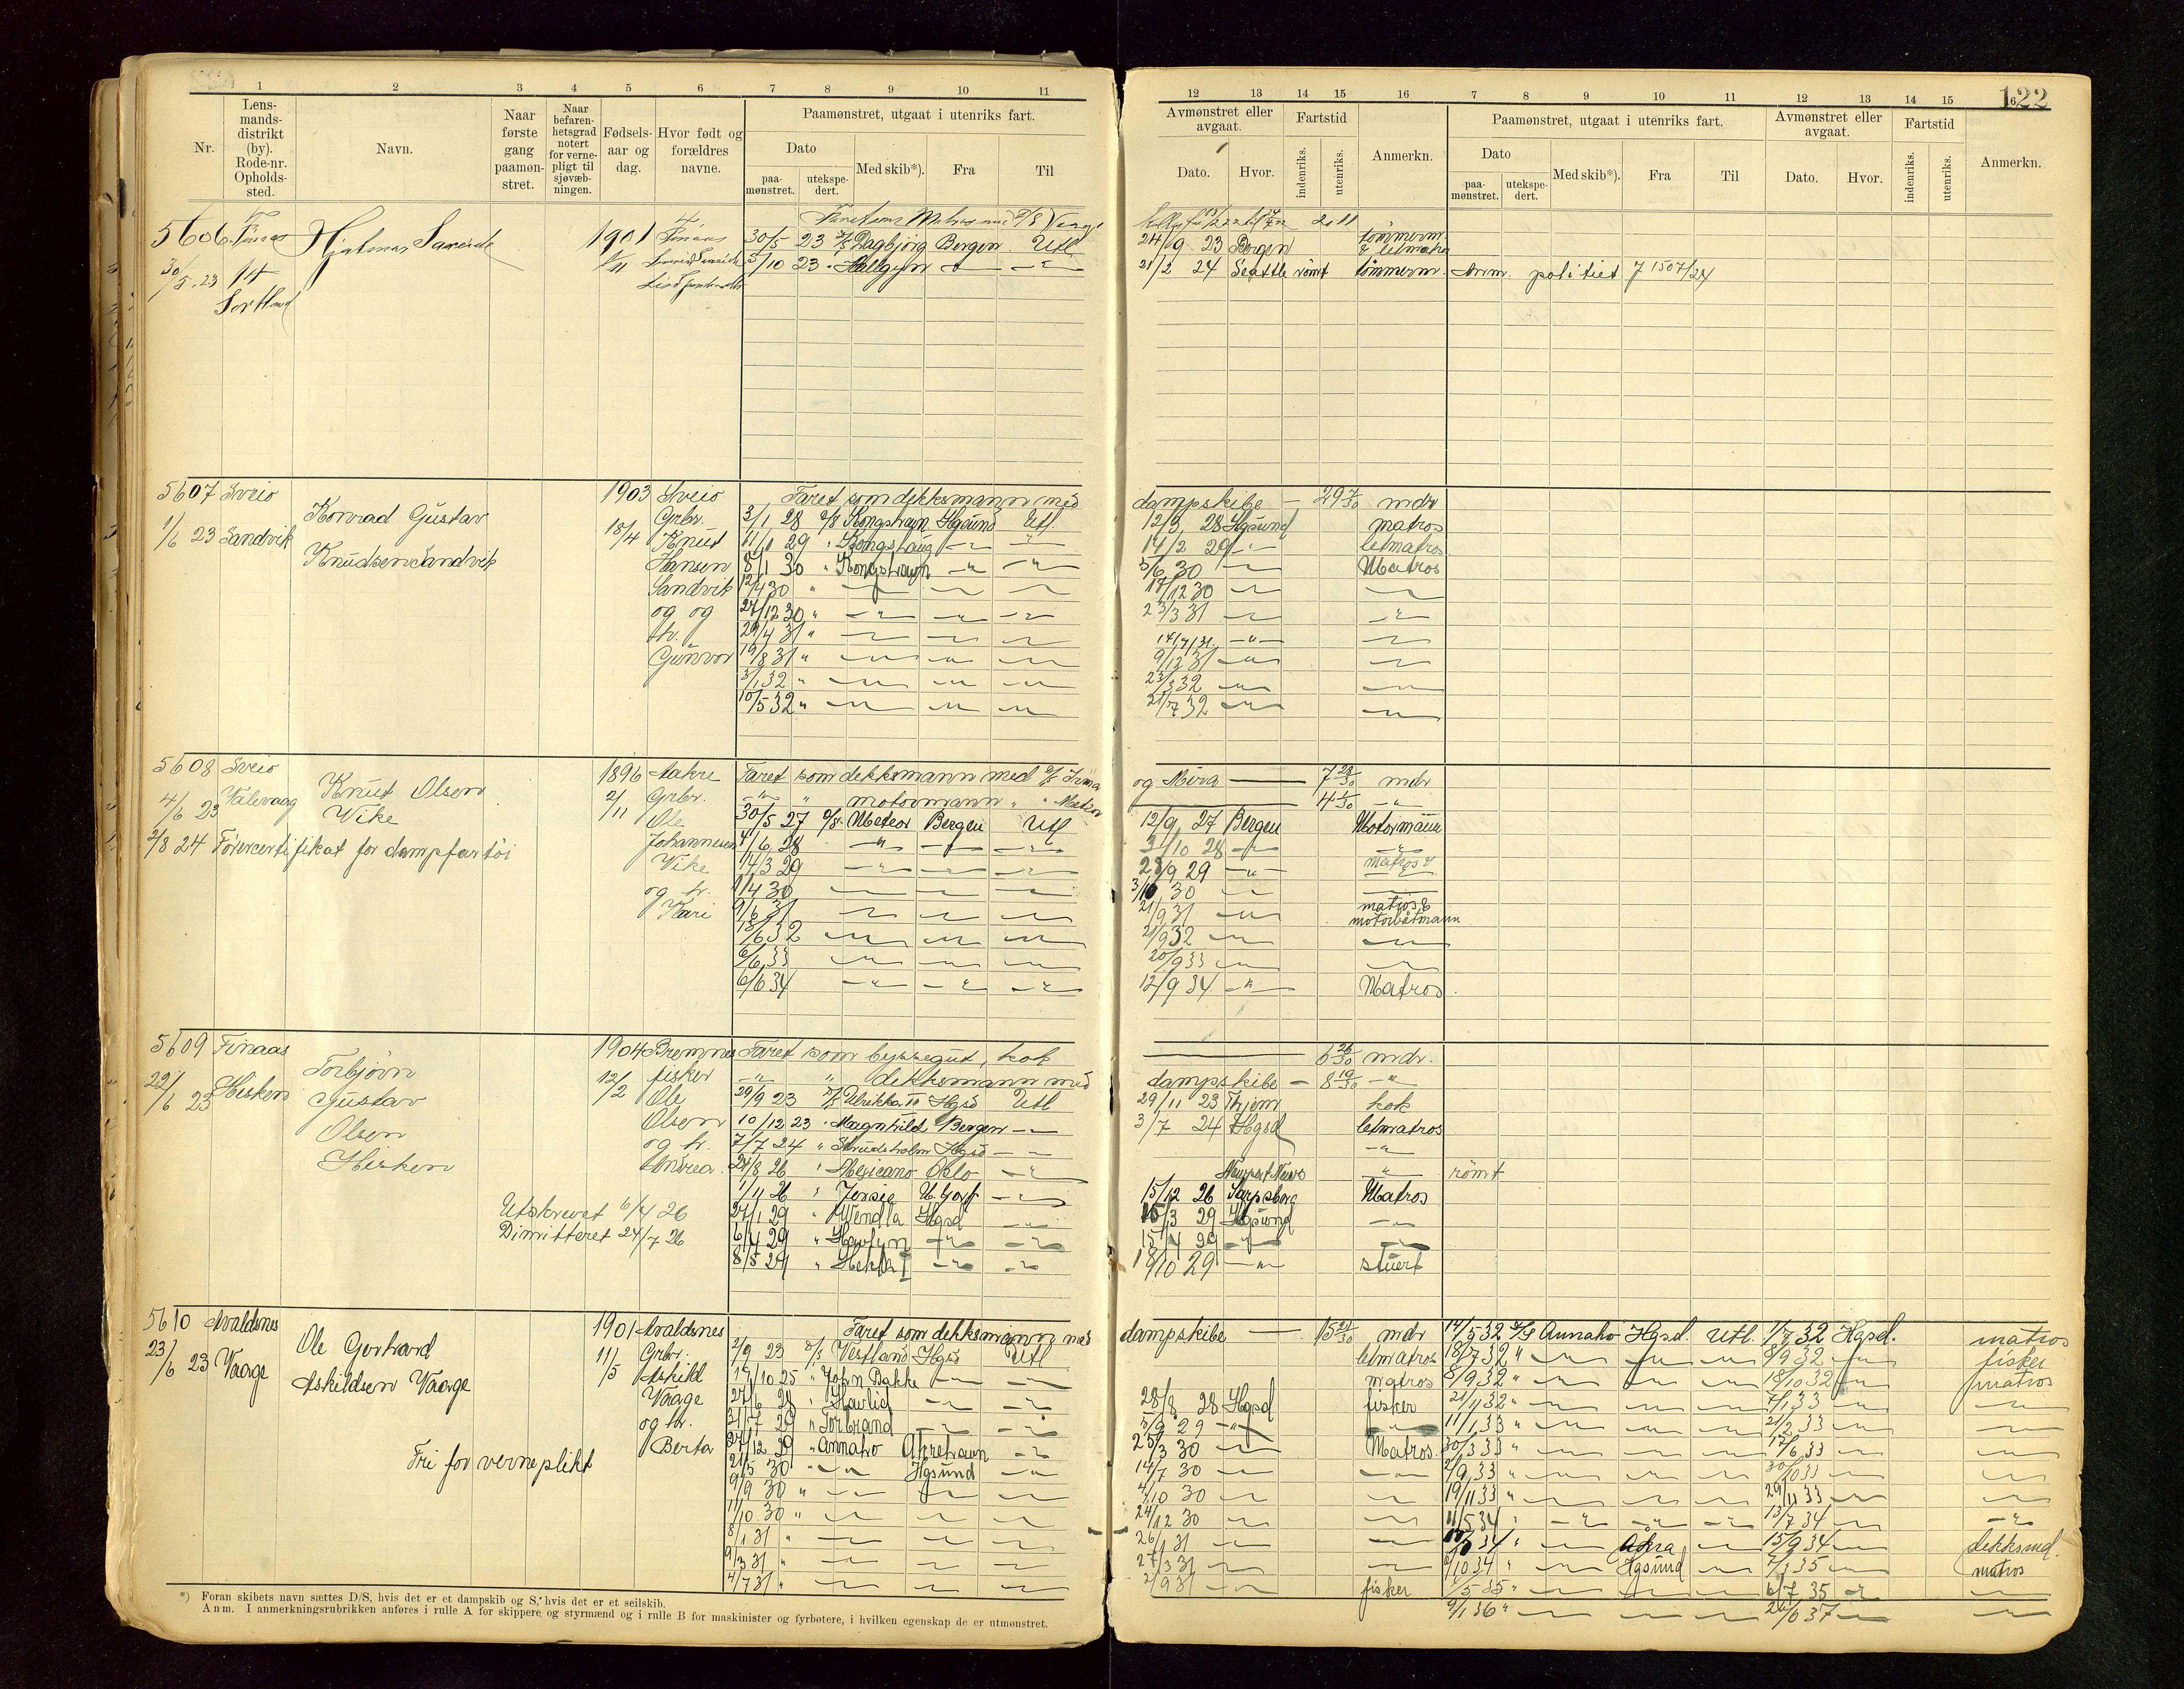 122
1 2 3 4 5 6 7 8 9 10 11
Nr.
Lens-
mands-
distrikt
(by).
Rode-nr.
Opholds-
sted.
Navn.
Naar
første
gang
paamøn-
stret.
Naar
befaren-
hetsgrad
notert
for verne-
pligt til
sjøvæb-
ningen.
Fødsels-
aar og
dag.
Hvor født og
forældres
navne.
Paamønstret, utgaat i utenriks fart.
Dato
paa-
mønstret.
utekspe-
dert.
Med skib*).
Fra
Til
12 13 14 15 16 7 8 9 10 11 12 13 14 15 16
Avmønstret eller
avgaat.
Dato.
Hvor.
Fartstid
indenriks.
utenriks.
Anmerkn.
Paamønstret, utgaat i utenriks fart.
Dato
paa-
mønstret.
utekspe-
dert.
Med skib*).
Fra
Til
Avmønstret eller
avgaat.
Dato.
Hvor.
Fartstid
indenriks.
utenriks.
Anmerkn.
5606 Finaas Hjalmar 1901 Finaas
30/5 23 Dagbjørg Bergen Utl 24/9 23 Bergen tømmerm. & letmatros
30/5 23 14
5/10 23 Hallgyn 21/2 24 Seattle rømt tømmerm. Anm. politiet 7 1507/24
5607 Sveio 1903 Sveio Faret som dekksmann med dampskibe — 29 7/30 mdr
1/6 23 Sandvik Konrad Gustav Knudsen Sandvik
18/4 Grbr. Knut Hansen Sandvik og og h. Gunvor
3/1 28 D/S Kongshavn Hgsund Utl. 12/3 28 Hgsund matros
11/1 29 " Kongshaug 14/2 29 letmatros
8/1 30 " Kongshavn 5/6 30 Matros
12/4 30 " 17/12 30
27/12 30 " 23/3 31
29/4 31 " 14/7 31
19/8 31 " 9/12 31
3/1 32 " 23/3 32
10/5 32 " 21/7 32
5608 Sveio 1896 Aakre Faret som dekksmann med D/S Irma og Mira — 7 28/30 mdr
4/6 23 Valevaag Knut Olsen Vike
2/11 Grbr. Ole Johannesen Vike og h. Kari
" motormann " " Meteor 4 1/30
2/8 24 Førercertifikat for dampfartøi
30/5 27 D/S Meteor Bergen Utl 12/9 27 Bergen Motormann
4/6 28 2/10 28
14/3 29 28/9 29 matros
1/4 30 3/10 30
9/6 31 21/9 31 matros & motorbåtmann
18/6 32 21/9 32
6/6 33 20/9 33
6/6 34 12/9 34 Matros.
5609 Finaas 1904 Bremnes Faret som byssegut, kok — 6 26/30 mdr.
22/6 23 Hisken Torbjørn Gustav Olsen Hisken
12/2 fisker Ole Olsen og h. Andrea.
" " dekksmann med dampskibe — 8 19/30
29/9 23 D/S Ulrikka II Hgsd Utl 29/11 23 Thjem kok
10/12 23 " Magnhild Bergen 3/7 24 Hgsd letmatros
7/7 24 " Skudeholm Hgsd
24/8 26 " Mexicano Oslo Newport News " rømt
1/11 26 " Jossie 15/12 26 Sarpsborg Matros
27/1 29 " Wendla Hgsd 15/3 29 Hgsund
6/4 29 " Havlyn 15/4 29
8/5 29 " Hekla I 19/10 29 stuert
Utskrevet 6/4 26
Dimitteret 24/7 26
5610 Avaldsnes 1901 Avaldsnes Faret som dekksmann med dampskibe — 15 21/30 mdr
23/6 23 Vaage Ole Gerhard Askildsen Vaage
11/5 Grbr. Askild Vaage og h. Berta
Fri for verneplikt
2/9 23 D/S Vestland Hgsd Utl letmatros
19/10 25 " John Bakke matros
27/6 28 " Havlid 28/8 28 Hgsd fisker
31/7 29 " Torbrand 3/9 29
27/12 29 " Annaho Åkrehavn 25/3 30 Matros
21/5 30 " Hgsund 14/7 30
9/9 30 " 4/10 30
11/10 30 " 24/12 30
8/1 31 " 26/1 31
9/3 31 " 27/3 31
4/7 31 " 2/9 31 fisker
14/5 32 D/S Annaho Hgsd. Utl. 1/7 32 Hgsd. matros
18/7 32 " 8/9 32 fisker
8/9 32 " 18/10 32 matros
21/11 32 " 7/1 33
11/1 33 " 21/2 33
30/3 33 " 17/6 33
2/9 33 " 30/10 33
19/11 33 " 29/11 33
11/5 34 " 13/7 34
34 " Åkra 15/9 34 dekksmd.
10 34 " Hgsund 7/3 35 matros
5 35 " 6/7 35
9/1 36 " 26/6 37
*) Foran skibets navn sættes D/S, hvis det er et dampskib og S, hvis det er et seilskib.
Anm. I anmerkningsrubrikken anføres i rulle A for skippere og styrmænd og i rulle B for maskinister og fyrbøtere, i hvilken egenskap de er utmønstret.